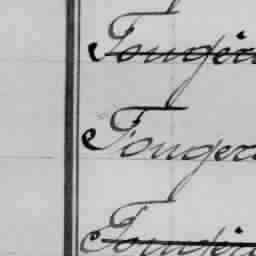 Fougère
Fougere
Fougère